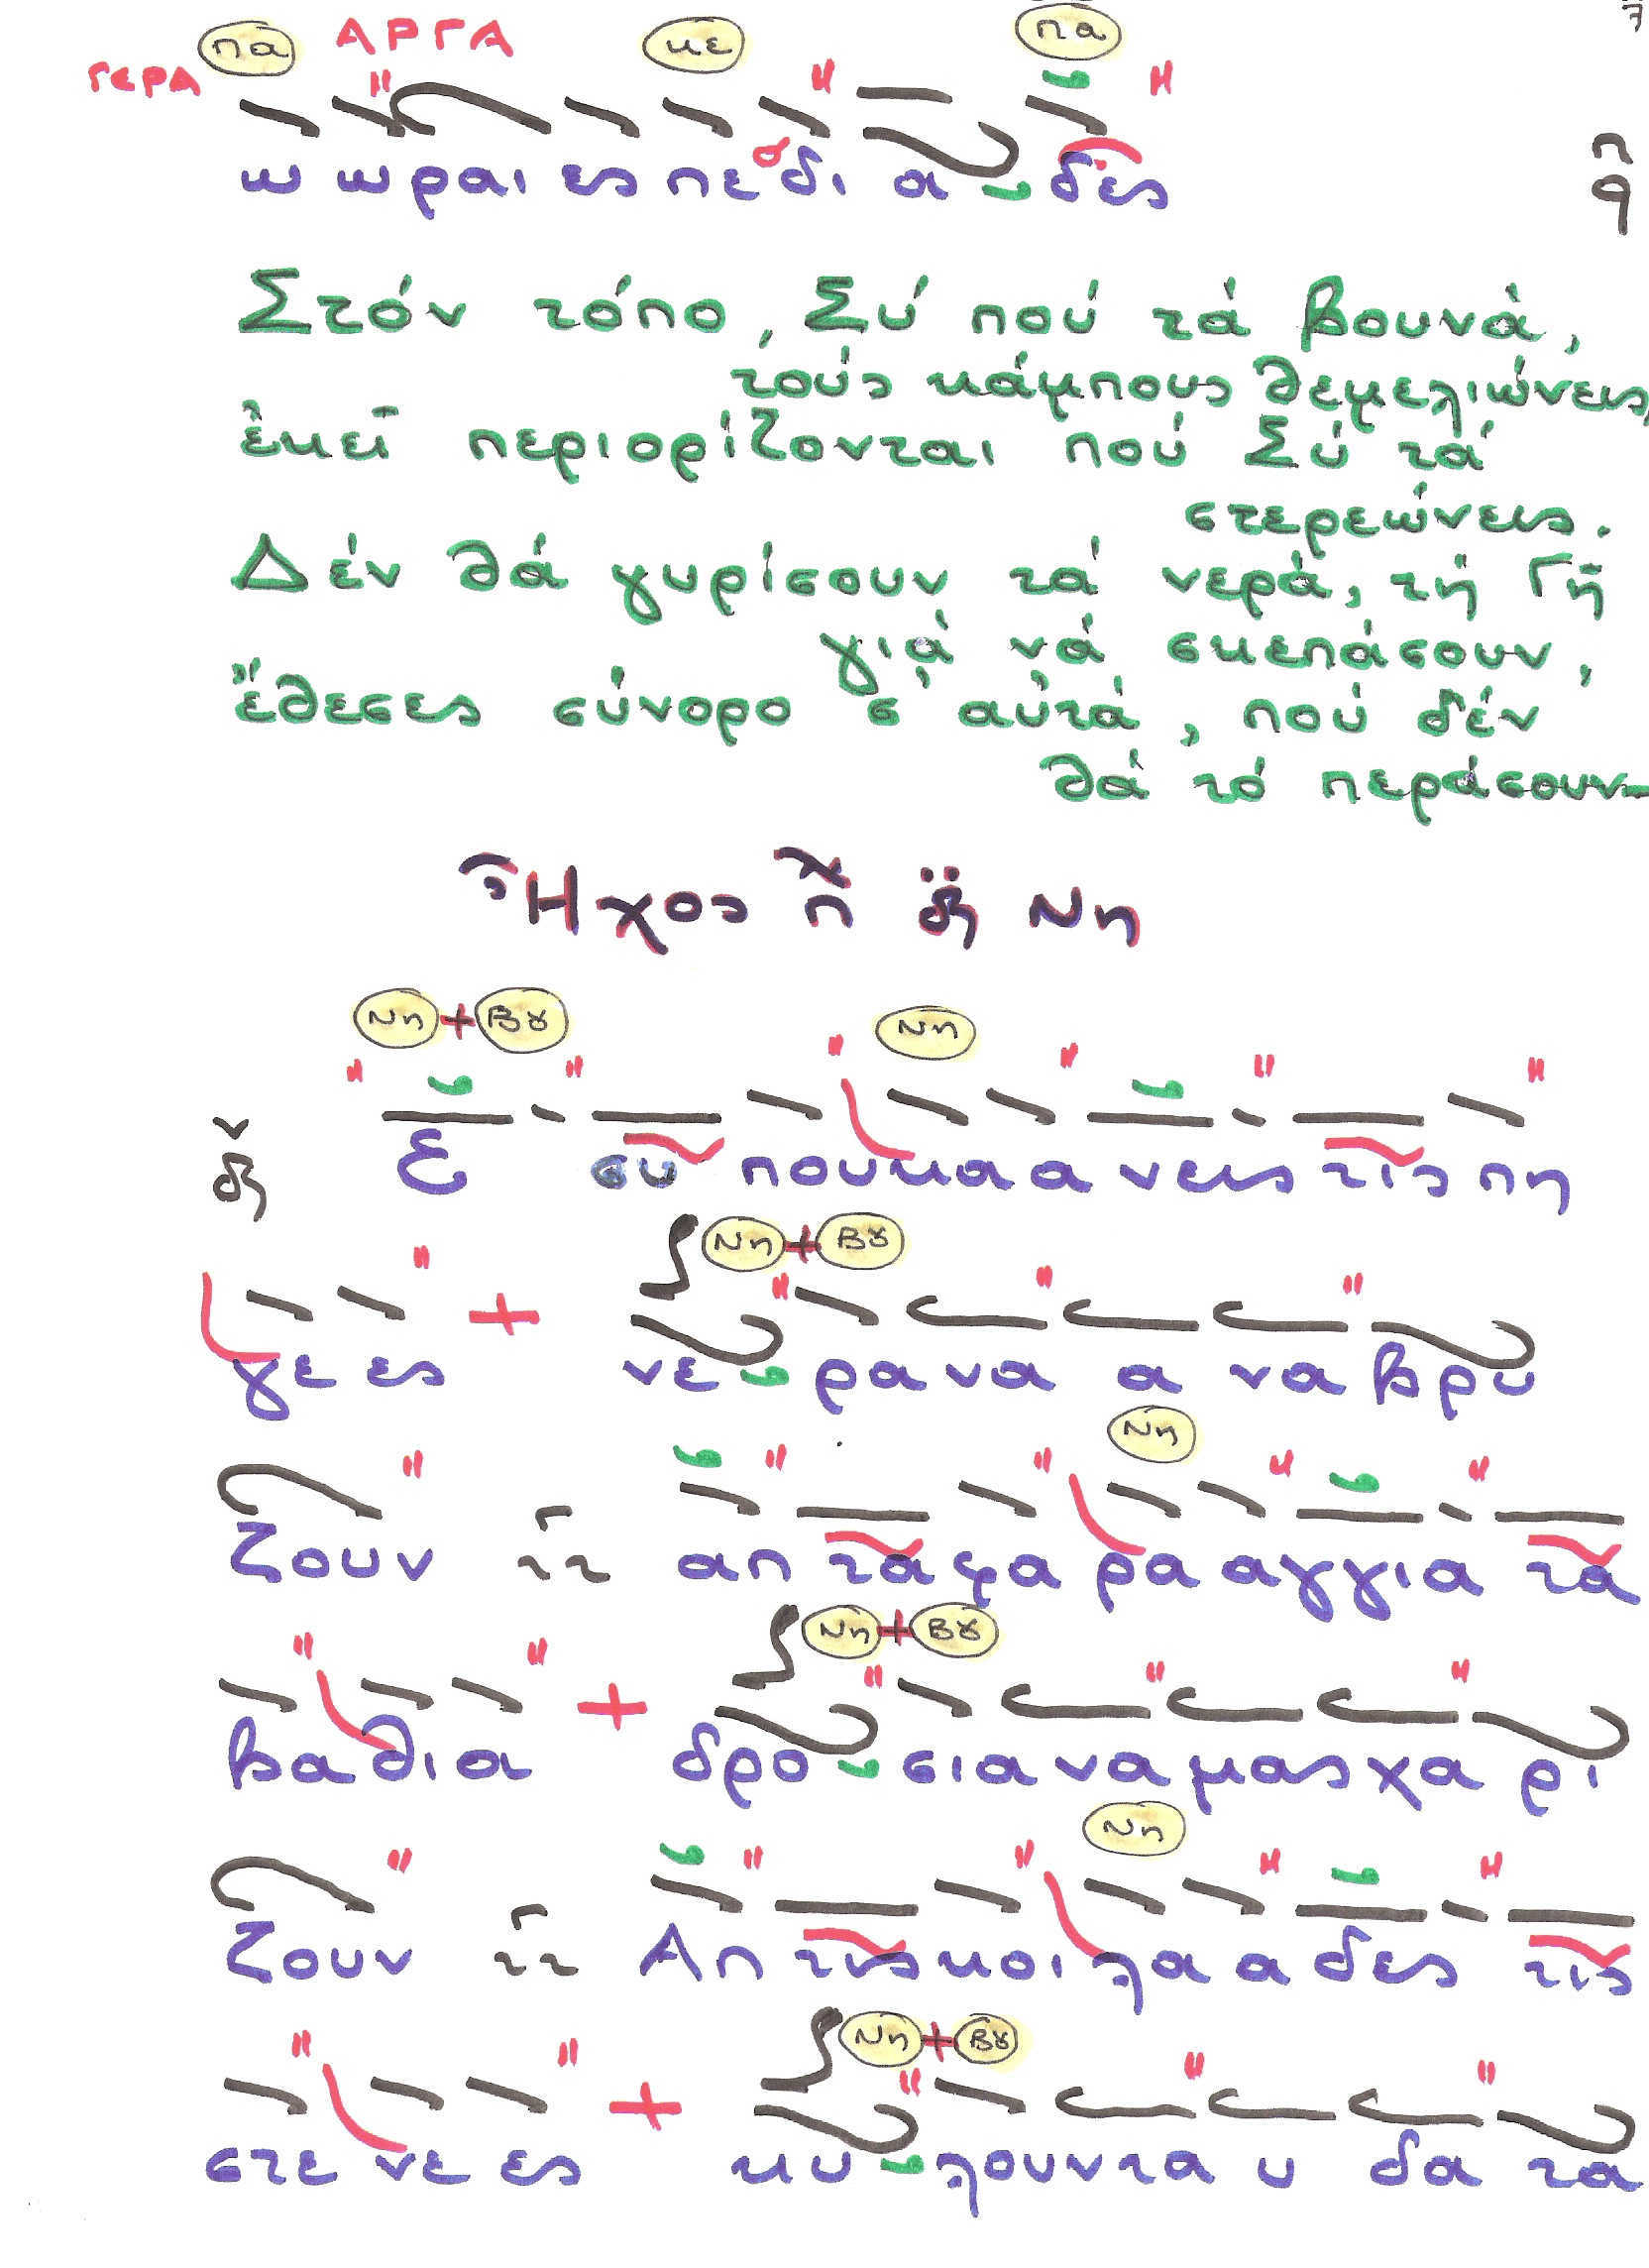 7
πα ΑΡΓΑ κε πα
ΓΕΡΑ
ω ωραι ες πε δι α δες
Στόν τόπο, Σύ πού τά βουνά,
τούς κάμπους θεμελιώνεις,
ἐκεῖ περιορίζονται πού Σύ τά
στερεώνεις.
Δέν θά γυρίσουν τά νερά, τή Γῆ
γιά νά σκεπάσουν,
ἔθεσες σύνορο σ' αὐτά, πού δέν
θά τό περάσουν-
Ἦχος π δι Νη
Νη + Βȣ Νη
Ε συ που κα α νεις τις πη
Νη + Βȣ
γε ες + νε ρα να α να βρυ
Νη
ζουν απ τα φα ρα αγγια τα
Νη + Βȣ
βα θι α + δρο σια να μας χα ρι
Νη
ζουν Απ τις κοι λα α δες τις
Νη + Βȣ
στε νε ες + κυ λουν τα υ δα τα